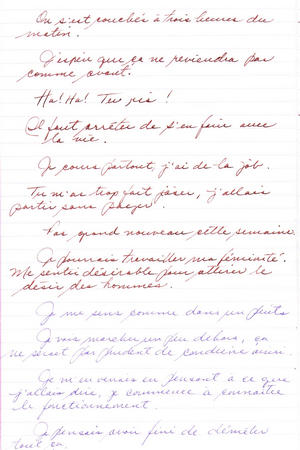 On s'est couchés à trois heures du
matin.
J'espère que ça ne reviendra pas
comme avant.
Ha! Ha! Tu pis!
Il faut arrêter de s'en faire avec
la vie.
Je cours partout, j'ai de la job.
Tu m'as trop fait jaser, j'allais
partir sans payer.
Pas grand nouveau cette semaine.
Je pourrais travailler ma féminité.
Me sentir désirable pour attirer le
désir des hommes.
Je me sens comme dans un puits
Je vais marcher un peu dehors, ça
ne serait pas prudent de conduire ainsi.
Je m'en venais en pensant à ce que
j'allais dire, je commence à connaître
le fonctionnement.
Je pensais avoir fini de démêler
tout ça.